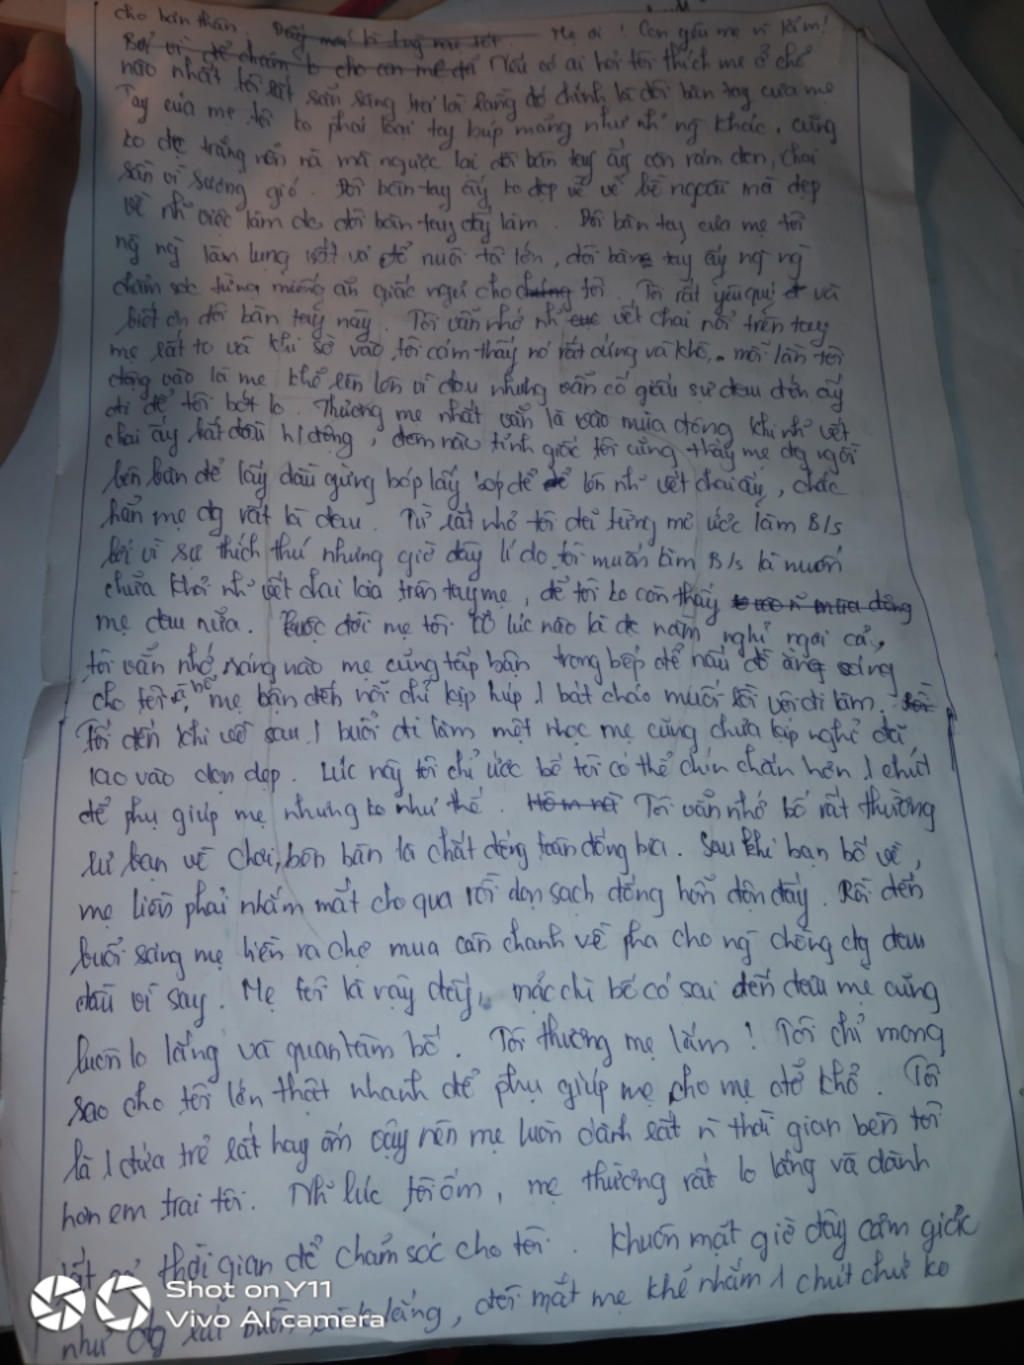 cho bản thân. Mẹ ơi! Con yêu mẹ vì lắm!
Bởi vì để chăm lo cho con mẹ đã Nếu có ai hỏi tôi thích mẹ ở chỗ
nào nhất tôi rất sẵn sàng trả lời rằng đó chính là đôi bàn tay của mẹ
Tay của mẹ tôi ko phải loại tay búp măng như nh ng khác, cũng
ko đẹp trắng nõn nà mà ngược lại đôi bàn tay ấy còn rám đen, chai
sần vì sương gió. Đôi bàn tay ấy ko đẹp về vẻ bề ngoài mà đẹp
về nh việc làm do đôi bàn tay đấy làm. Đôi bàn tay của mẹ tôi
ng ng làm lụng vất vả để nuôi tôi lớn, đôi bàn tay ấy ng ng
chăm sóc từng miếng ăn giấc ngủ cho chúng tôi. Tôi rất yêu quý và
biết ơn đôi bàn tay này. Tôi vẫn nhớ nh vết chai nổi trên tay
mẹ rất to và khi sờ vào, tôi cảm thấy nó rất cứng và khô, mỗi lần tôi
động vào là mẹ khẽ lên vì đau nhưng vẫn cố giấu sự đau đớn ấy
đi để tôi bớt lo. Thương mẹ nhất vẫn là vào mùa đông khi nh vết
chai ấy bắt đầu hđộng, đêm nào tỉnh giấc tôi cũng thấy mẹ đg ngồi
bên bàn để lấy dầu gừng bóp lấy bóp để nh vết chai ấy, chắc
hẳn mẹ đg rất là đau. Từ rất nhỏ tôi đã từng mơ ước làm B/s
bởi vì sự thích thú nhưng giờ đây lí do tôi muốn làm B/s là muốn
chữa khỏi nh vết chai trên tay mẹ, để tôi ko còn thấy
mẹ đau nữa. Cuộc đời mẹ tôi có lúc nào là đc nằm nghỉ ngơi cả,
tôi vẫn nhớ, sáng nào mẹ cũng tấp bận trong bếp để nấu đồ ăng sáng
cho tôi bố, mẹ bận đến nỗi chỉ kịp húp 1 bát cháo muối rồi vội đi làm.
Tối đến khi về sau 1 buổi đi làm mệt nhọc mẹ cũng chưa kịp nghỉ đã
lao vào dọn dẹp. Lúc này tôi chỉ ước bố tôi có thể chín chắn hơn 1 chút
để phụ giúp mẹ nhưng ko như thế. Tôi vẫn nhớ bố rất thường
rủ bạn về chơi, bên bàn là chất đống toàn đống bia. Sau khi bạn bố về,
mẹ liền phải nhắm mắt cho qua rồi dọn sạch đống hỗn độn đấy. Rồi đến
buổi sáng mẹ liền ra chợ mua cân chanh về pha cho ng chồng đg đau
đầu vì say. Mẹ tôi là vậy đấy, mặc chi bố có sai đến đâu mẹ cũng
luôn lo lắng và quan tâm bố. Tôi thương mẹ lắm! Tôi chỉ mong
sao cho tôi lớn thật nhanh để phụ giúp mẹ cho mẹ đỡ khổ. Tôi
là 1 đứa trẻ rất hay ốm vậy nên mẹ luôn dành rất n thời gian bên tôi
hơn em trai tôi. Nh lúc tôi ốm, mẹ thường rất lo lắng và dành
thời gian để chăm sóc cho tôi. Khuôn mặt giờ đây cảm giác
như đg rất buồn, lo lắng, đôi mắt mẹ khẽ nhắm 1 chút chứ ko
Shot on Y11
Vivo AI camera